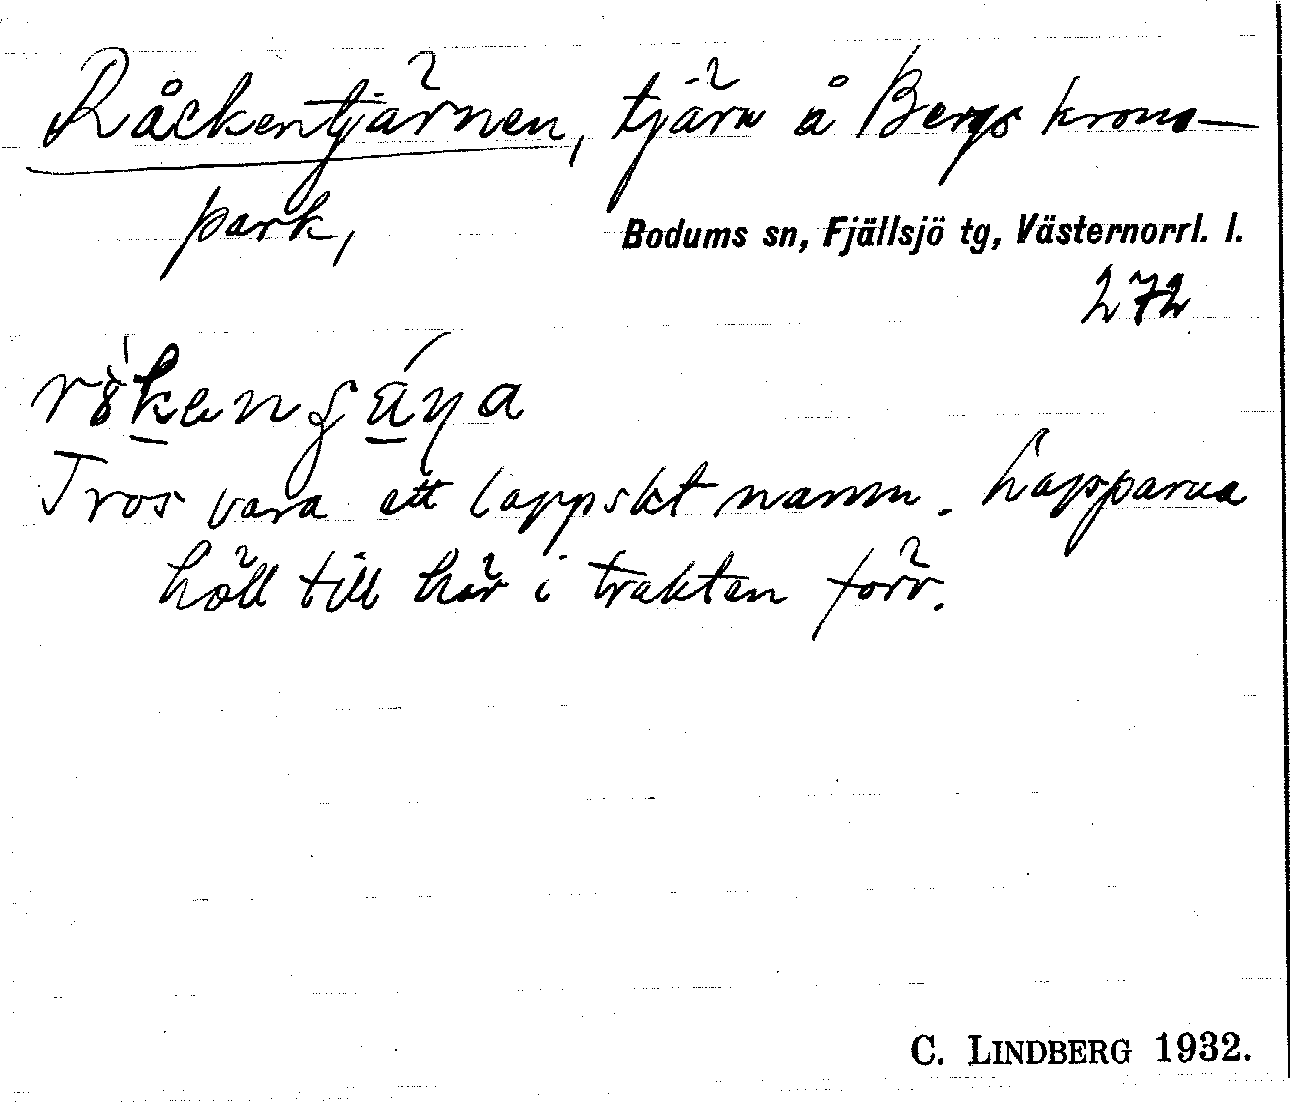 Råckentjärnen, tjärn å Bergs krono-
park,
Bodums sn, Fjällsjö tg, Västernorrl. l.
272
Tros vara ett lappskt namn. Lapparna
höll till här i trakten förr.
C. LINDBERG 1932.